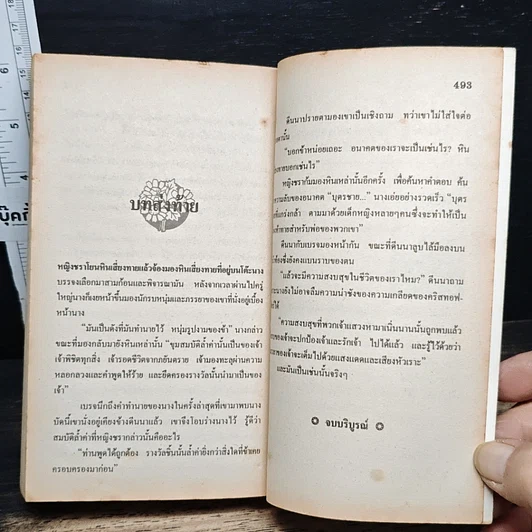 บทส่งท้าย
หญิงชราโยนหินเสี่ยงทายแล้วจ้องมองหินเสี่ยงทายที่อยู่บนโต๊ะนาง
บรรจงเลือกมาสามก้อนและพิจารณามัน หลังจากเวลาผ่านไปครู่
ใหญ่นางก็เงยหน้าขึ้นมองนักรบหนุ่มและภรรยาของเขาที่นั่งอยู่เบื้อง
หน้านาง
"มันเป็นดังที่ฉันทำนายไว้ หนุ่มรูปงามของข้า" นางกล่าว
ขณะที่มองกลับมายังหินเสี่ยงทาย "ขุมสมบัติล้ำค่านั้นเป็นของเจ้า
เจ้าพิชิตทุกสิ่ง เจ้ารอดชีวิตจากภยันตราย เจ้ามองทะลุผ่านความ
หลอกลวงและคำพูดให้ร้าย และยึดครองรางวัลนั้นนำมาเป็นของ
เจ้า"
เบรจนึกถึงคำทำนายของนางในครั้งล่าสุดที่เขามาพบนาง
บัดนี้เขานั่งอยู่เคียงข้างดีนนาแล้ว เขาจึงโอบร่างนางไว้ รู้ดีว่า
สมบัติล้ำค่าที่หญิงชรากล่าวนั้นคืออะไร
"ท่านพูดได้ถูกต้อง รางวัลชิ้นนั้นล้ำค่ายิ่งกว่าสิ่งใดที่ข้าเคย
ครอบครองมาก่อน"
493
ดีนนาปรายตามองเขาเป็นเชิงถาม ทว่าเขาไม่ใส่ใจต่อ
"บอกข้าหน่อยเถอะ อนาคตของเราจะเป็นเช่นไร? หิน
หญิงชราก้มมองหินเหล่านั้นอีกครั้ง เพื่อค้นหาคำตอบ ค้น
ความลับของอนาคต "บุตรชาย..." นางเอ่ยอย่างรวดเร็ว "บุตร
แกร่งกล้า ตามมาด้วยเด็กหญิงหลายๆคนซึ่งจะทำให้เป็น
สำหรับผู้เป็นพ่อของพวกเขา"
ดีนนากับเบรจมองหน้ากัน ขณะที่ดีนนาลูบไล้มือลงบน
ท้องซึ่งยังคงแบนราบของตน
"แล้วจะมีความสงบสุขในชีวิตของเราไหม?" ดีนนาถาม
นางยังไม่อาจลืมความน่าชังของความเกลียดของคริสทอฟ
"ความสงบสุขที่พวกเจ้าแสวงหามาเนิ่นนานนั้นถูกพบแล้ว
ของเจ้าจะปกป้องเจ้าและรักเจ้า ไปได้แล้ว และรู้ไว้ด้วยว่า
ของเจ้าจะเต็มไปด้วยแสงแดดและเสียงหัวเราะ"
และมันเป็นเช่นนั้นจริงๆ
จบบริบูรณ์